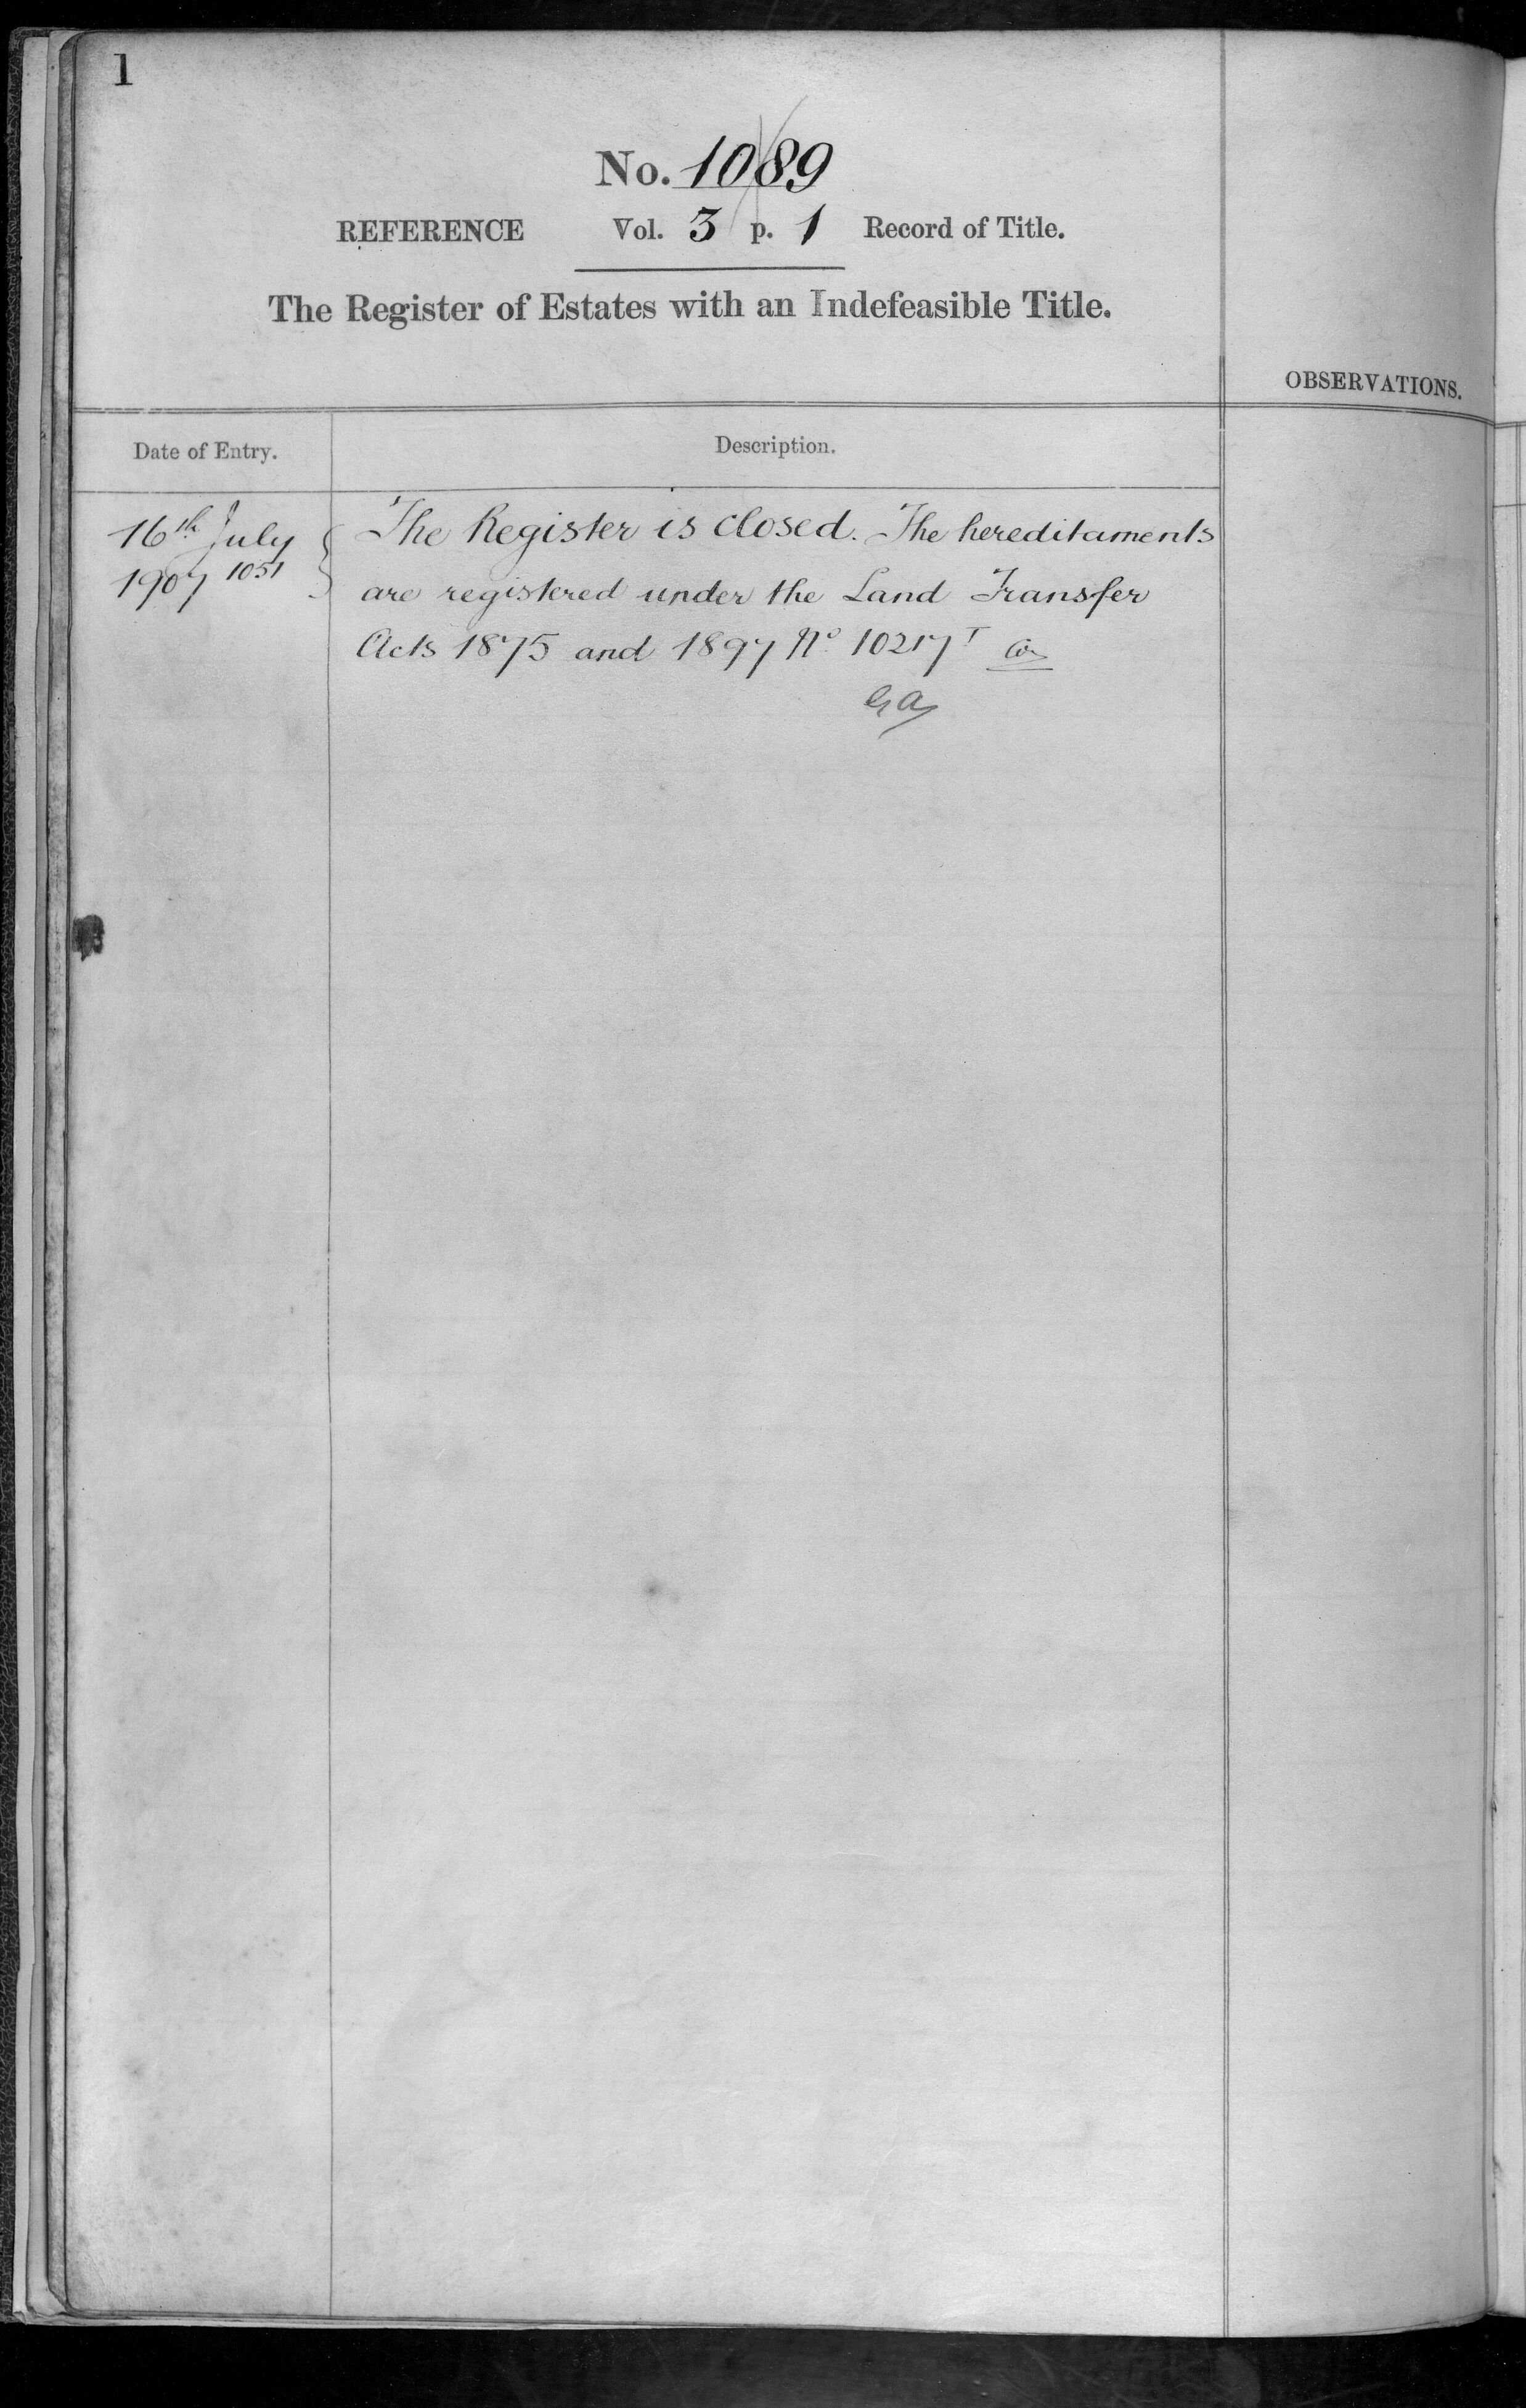 1
No. 1089
REFERENCE Vol. 3 p. 1 Record of Title.
The Register of Estates with an Indefeasible Title.
OBSERVATIONS.
Date of Entry.
Description.
16th July
1907 1051
The Register is closed. The hereditaments
are registered under the Land Transfer
Acts 1875 and 1897 No 10217T